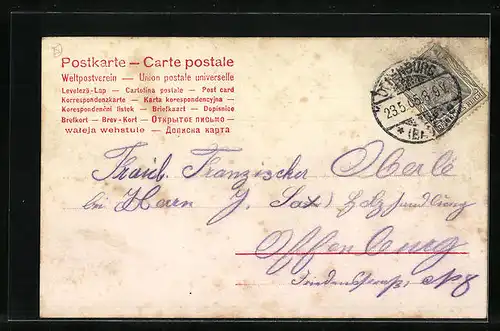 Postkarte — Carte postale
Weltpostverein — Union postale universelle
Levelezö-Lap — Cartolina postale — Post card
Korrespondenzkarte — Karta korespondencyjna —
Korespondenční lístek — Briefkaart — Dopisnice
Brefkort — Brev-Kort — Открытое письмо —
waleja wehstule — Дописна карта
OFFENBURG
23.5.
(BADEN)
Oberle
bei Herrn J. Sax, Holzhandlung
Offenburg